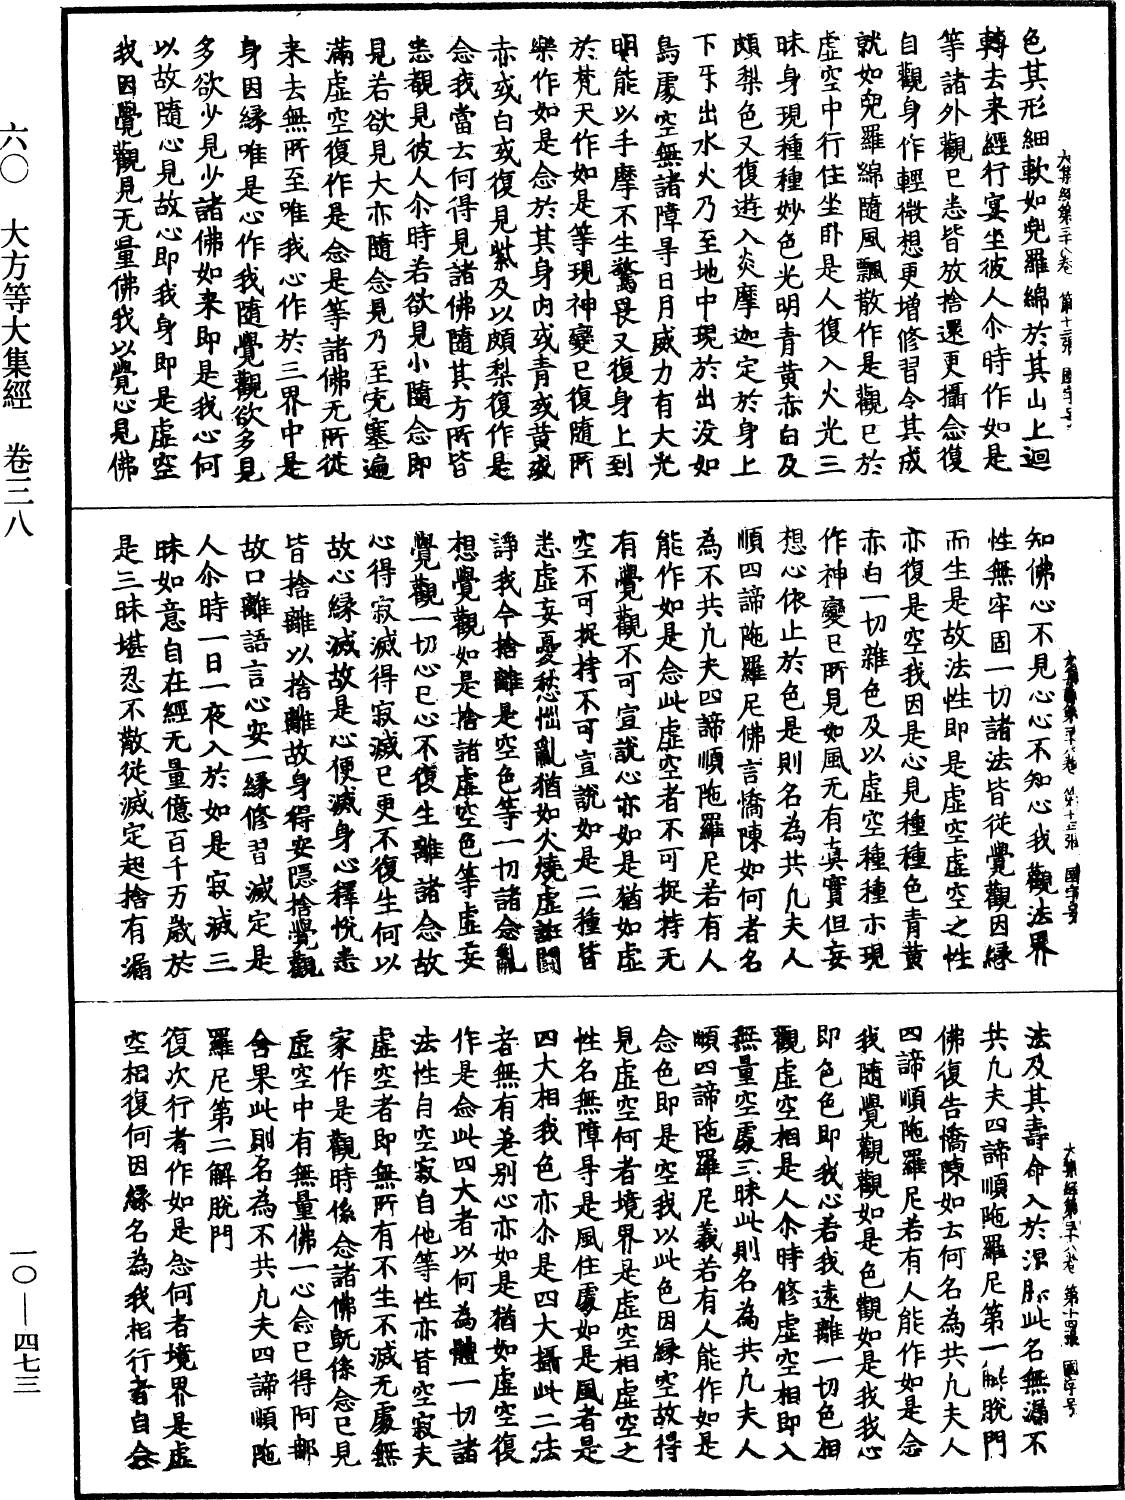 六〇　大方等大集經　卷三八
一〇—四七三
大集經第三十八卷　第十二張　國字号
色其形細軟如兜羅綿於其山上迴
轉去来經行宴坐彼人尒時作如是
等諸外觀已悉皆放捨還更攝念復
自觀身作輕微想更增修習令其成
就如兜羅綿隨風飄散作是觀已於
虛空中行住坐卧是人復入火光三
昧身現種種妙色光明青黃赤白及
頗梨色又復遊入炎摩迦定於身上
下牙出水火乃至地中現於出没如
鳥處空無諸障㝵日月威力有大光
明能以手摩不生驚畏又復身上到
於梵天作如是等現神變已復随所
樂作如是念於其身内或青或黃或
赤或白或復見紫及以頗梨復作是
念我當云何得見諸佛隨其方所皆
悉觀見彼人尒時若欲見小隨念即
見若欲見大亦隨念見乃至充塞遍
滿虛空復作是念是等諸佛无所從
来去無所至唯我心作於三界中是
身因緣唯是心作我隨覺觀欲多見
多欲少見少諸佛如来即是我心何
以故隨心見故心即我身即是虛空
我因覺觀見无量佛我以覺心見佛
大集經第三十八卷　第十三張　國字号
知佛心不見心心不知心我觀法界
性無牢固一切諸法皆從覺觀因緣
而生是故法性即是虛空虛空之性
亦復是空我因是心見種種色青黃
赤白一切雜色及以虛空種種示現
作神變已所見如風无有真實但妄
想心依止於色是則名為共凡夫人
順四諦陁羅尼佛言憍陳如何者名
為不共凡夫四諦順陁羅尼若有人
能作如是念此虛空者不可捉持无
有覺觀不可宣說心亦如是猶如虛
空不可捉持不可宣說如是二種皆
悉虛妄憂愁惱亂猶如火燒虛誑鬪
諍我今捨離是空色等一切諸念亂
想覺觀如是捨諸虛空色等虛妄
覺觀一切心已心不復生離諸念故
心得寂滅得寂滅已更不復生何以
故心緣滅故是心便滅身心釋悅悉
皆捨離以捨離故身得安隱捨覺觀
故口離語言心安一緣修習滅定是
人尒時一日一夜入於如是寂滅三
昧如意自在經无量億百千万歲於
是三昧堪忍不散從滅定起捨有漏
大集經第三十八卷　第十四張　國字号
法及其壽命入於涅槃此名無漏不
共凡夫四諦順陁羅尼第一解脫門
佛復告憍陳如云何名為共凡夫人
四諦順陁羅尼若有人能作如是念
我隨覺觀觀如是色觀如是我我心
即色色即我心若我遠離一切色相
觀虛空相是人尒時修虛空相即入
無量空處三昧此則名為共凡夫人
順四諦陁羅尼義若有人能作如是
念色即是空我以此色因緣空故得
見虛空何者境界是虛空相虛空之
性名無障㝵是風住處如是風者是
四大相我色亦尒是四大攝此二法
者無有差別心亦如是猶如虛空復
作是念此四大者以何為體一切諸
法性自空寂自他等性亦皆空寂夫
虛空者即無所有不生不滅无處無
家作是觀時係念諸佛旣係念已見
虛空中有無量佛一心念已得阿那
含果此則名為不共凡夫四諦順陁
羅尼第二解脫門
復次行者作如是念何者境界是虛
空相復何因緣名為我相行者自念